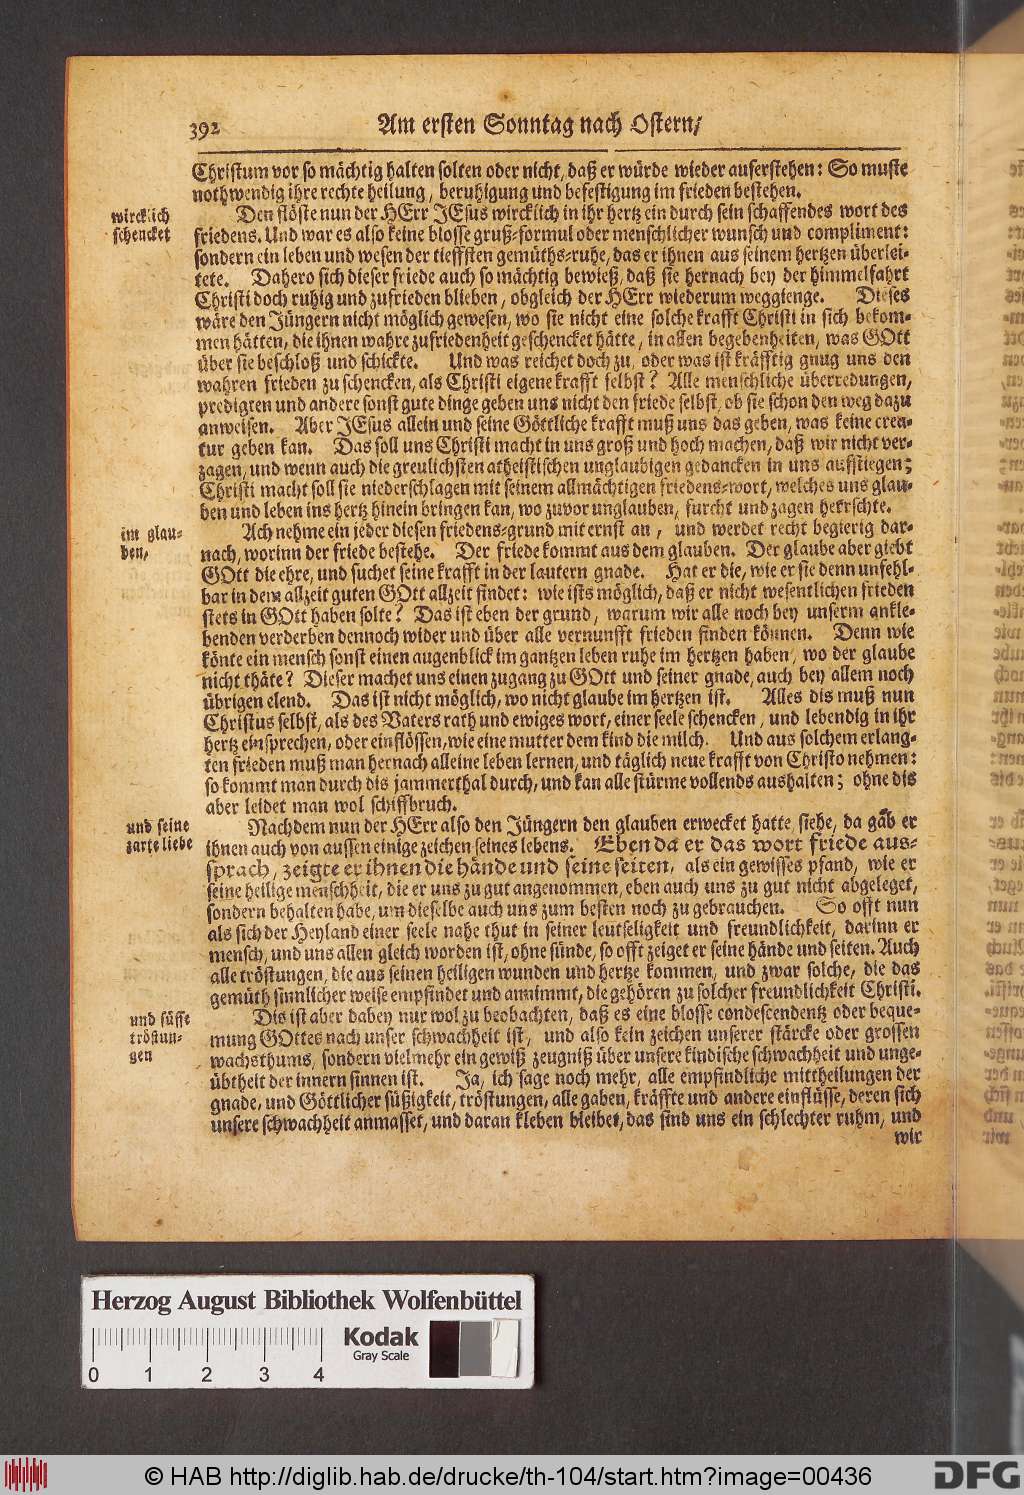 392
Am ersten Sonntag nach Ostern/
Christum vor so mächtig halten solten oder nicht, daß er würde wieder auferstehen: So muste
nothwendig ihre rechte heilung, beruhigung und befestigung im frieden bestehen.
wircklich
schencket
Den flöste nun der HErr JEsus wircklich in ihr hertz ein durch sein schaffendes wort des
friedens. Und war es also keine blosse gruß-formul oder menschlicher wunsch und compliment:
sondern ein leben und wesen der tieffsten gemüths-ruhe, das er ihnen aus seinem hertzen überlei-
tete. Dahero sich dieser friede auch so mächtig bewieß, daß sie hernach bey der himmelfahrt
Christi doch ruhig und zufrieden blieben, obgleich der HErr wiederum weggienge. Dieses
wäre den Jüngern nicht möglich gewesen, wo sie nicht eine solche krafft Christi in sich bekom-
men hätten, die ihnen wahre zufriedenheit geschencket hätte, in allen begebenheiten, was GOtt
über sie beschloß und schickte. Und was reichet doch zu, oder was ist kräfftig gnug uns den
wahren frieden zu schencken, als Christi eigene krafft selbst? Alle menschliche überredungen,
predigten und andere sonst gute dinge geben uns nicht den friede selbst, ob sie schon den weg dazu
anweisen. Aber JEsus allein und seine Göttliche krafft muß uns das geben, was keine crea-
tur geben kan. Das soll uns Christi macht in uns groß und hoch machen, daß wir nicht ver-
zagen, und wenn auch die greulichsten atheistischen unglaubigen gedancken in uns aufstiegen;
Christi macht soll sie niederschlagen mit seinem allmächtigen friedens-wort, welches uns glau-
ben und leben ins hertz hinein bringen kan, wo zuvor unglauben, furcht und zagen herrschte.
im glau-
ben,
Ach nehme ein jeder diesen friedens-grund mit ernst an, und werdet recht begierig dar-
nach, worinn der friede bestehe. Der friede kommt aus dem glauben. Der glaube aber giebt
GOtt die ehre, und suchet seine krafft in der lautern gnade. Hat er die, wie er sie denn unfehl-
bar in dem allzeit guten GOtt allzeit findet: wie ists möglich, daß er nicht wesentlichen frieden
stets in GOtt haben solte? Das ist eben der grund, warum wir alle noch bey unserm ankle-
benden verderben dennoch wider und über alle vernunfft frieden finden können. Denn wie
könte ein mensch sonst einen augenblick im gantzen leben ruhe im hertzen haben, wo der glaube
nicht thäte? Dieser machet uns einen zugang zu GOtt und seiner gnade, auch bey allem noch
übrigen elend. Das ist nicht möglich, wo nicht glaube im hertzen ist. Alles dis muß nun
Christus selbst, als des Vaters rath und ewiges wort, einer seele schencken, und lebendig in ihr
hertz einsprechen, oder einflössen, wie eine mutter dem kind die milch. Und aus solchem erlang-
ten frieden muß man hernach alleine leben lernen, und täglich neue krafft von Christo nehmen:
so kommt man durch dis jammerthal durch, und kan alle stürme vollends aushalten; ohne dis
aber leidet man wol schiffbruch.
und seine
zarte liebe
Nachdem nun der HErr also den Jüngern den glauben erwecket hatte, siehe, da gab er
ihnen auch von aussen einige zeichen seines lebens. Eben da er das wort friede aus-
sprach, zeigte er ihnen die hände und seine seiten, als ein gewisses pfand, wie er
seine heilige menschheit, die er uns zu gut angenommen, eben auch uns zu gut nicht abgeleget,
sondern behalten habe, um dieselbe auch uns zum besten noch zu gebrauchen. So offt nun
als sich der Heyland einer seele nahe thut in seiner leutseligkeit und freundlichkeit, darinn er
mensch, und uns allen gleich worden ist, ohne sünde, so offt zeiget er seine hände und seiten. Auch
alle tröstungen, die aus seinen heiligen wunden und hertze kommen, und zwar solche, die das
gemüth sinnlicher weise empfindet und annimmt, die gehören zu solcher freundlichkeit Christi.
und süsse
tröstun-
gen
Dis ist aber dabey nur wol zu beobachten, daß es eine blosse condescendentz oder beque-
mung GOttes nach unser schwachheit ist, und also kein zeichen unserer stärcke oder grossen
wachsthums, sondern vielmehr ein gewiß zeugniß über unsere kindische schwachheit und unge-
übtheit der innern sinnen ist. Ja, ich sage noch mehr, alle empfindliche mittheilungen der
gnade, und Göttlicher süßigkeit, tröstungen, alle gaben, kräffte und andere einflüsse, deren sich
unsere schwachheit anmasset, und daran kleben bleibet, das sind uns ein schlechter ruhm, und
wir
Herzog August Bibliothek Wolfenbüttel
Kodak
Gray Scale
0 1 2 3 4
© HAB http://diglib.hab.de/drucke/th-104/start.htm?image=00436
DFG